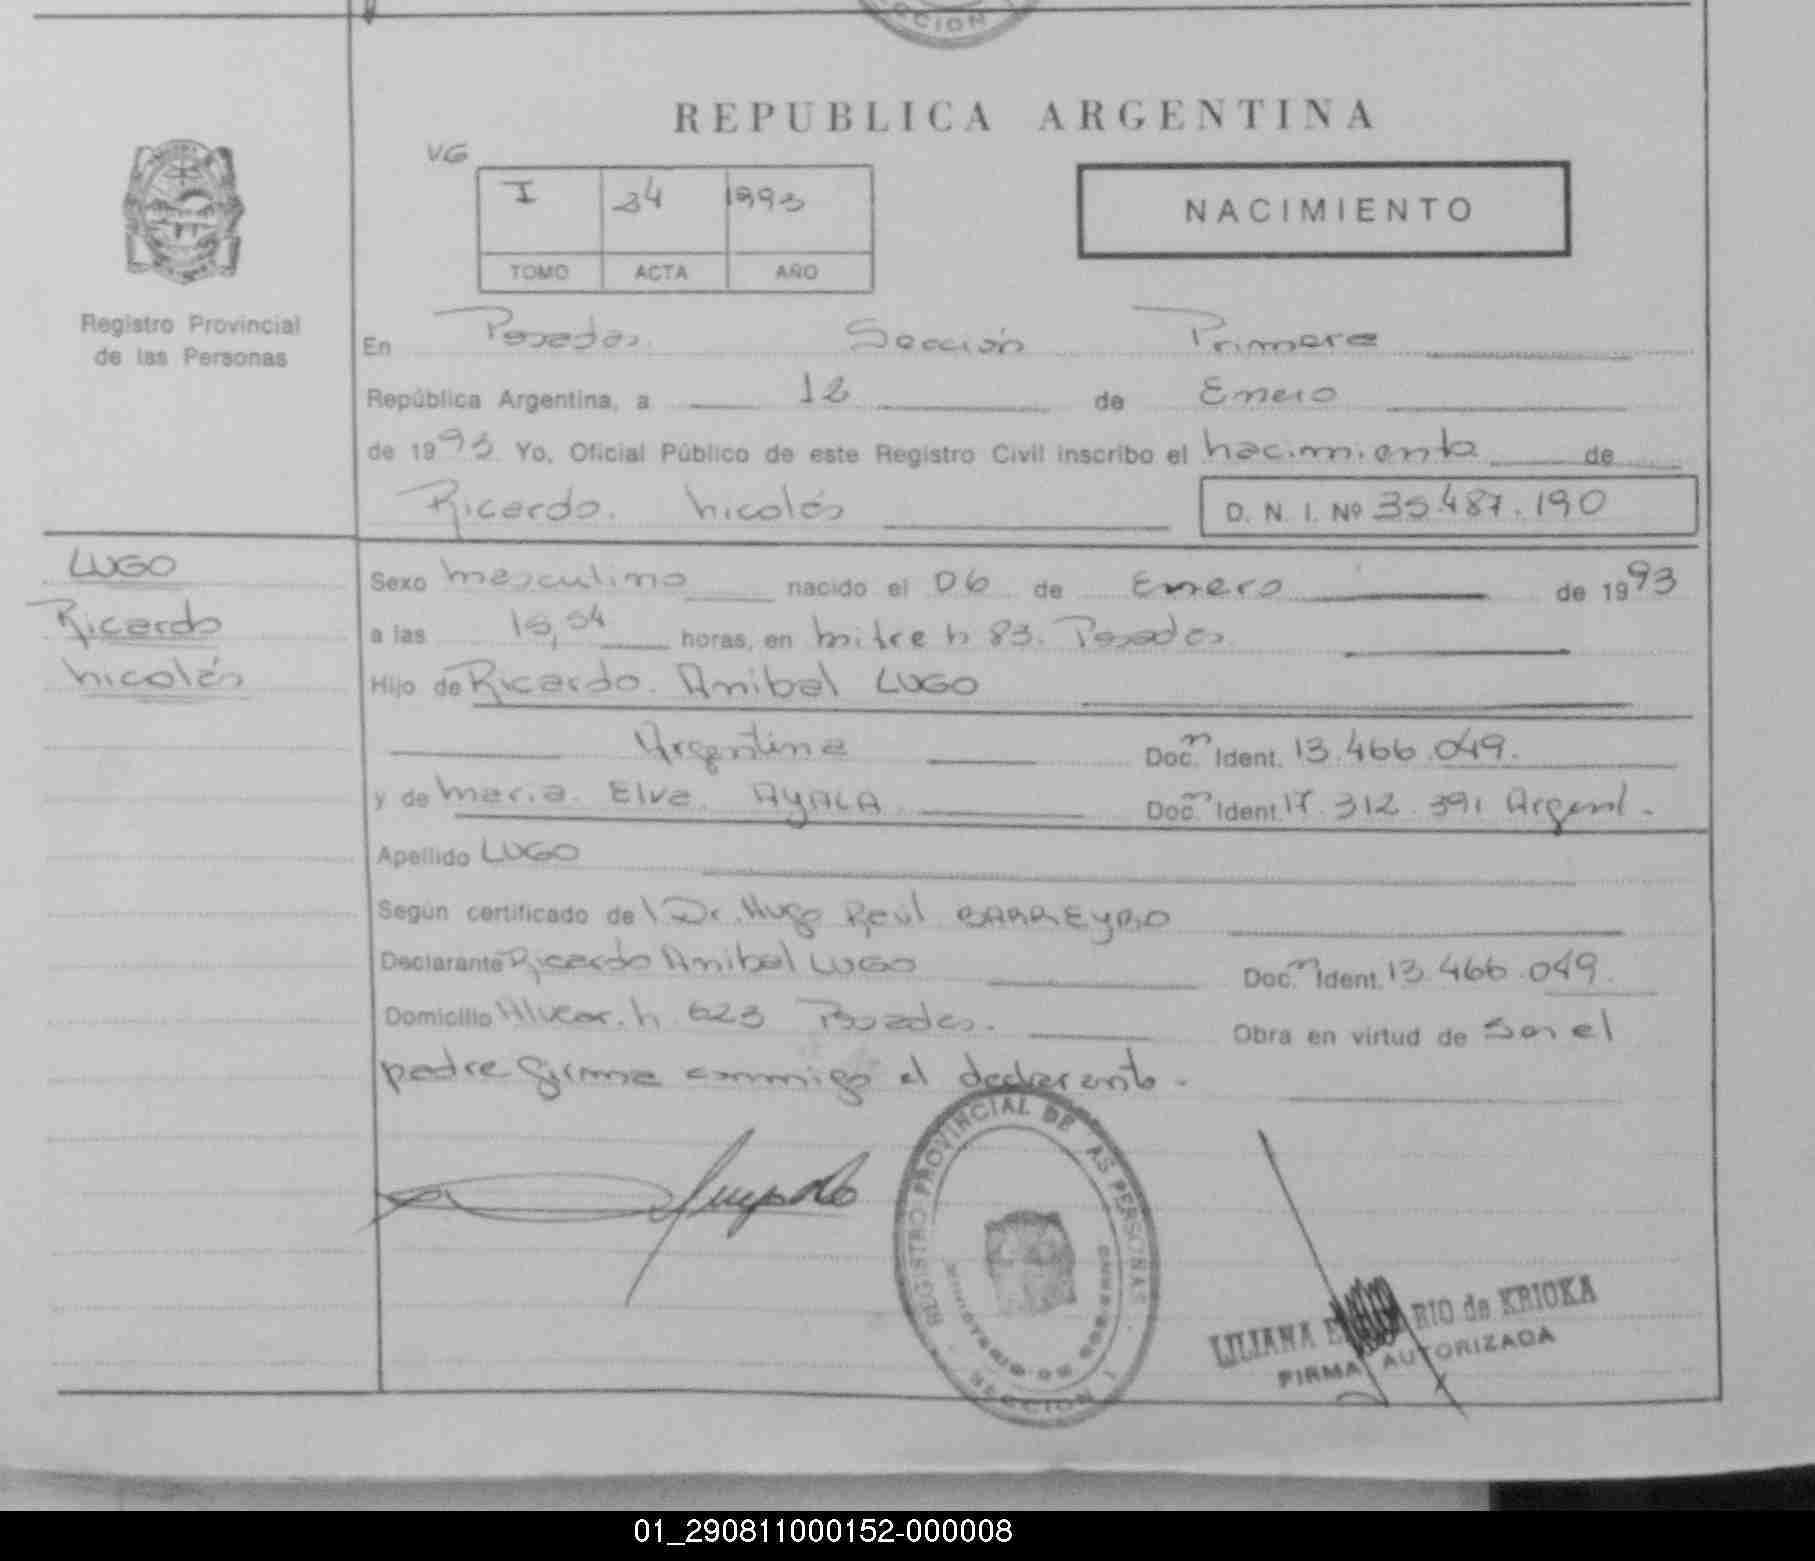 CCION
REPUBLICA ARGENTINA
VG
I 34 1993
TOMO ACTA AÑO
NACIMIENTO
Registro Provincial
de las Personas
En Posadas. Sección Primera
República Argentina, a 12 de Enero
de 1993 Yo, Oficial Público de este Registro Civil inscribo el nacimiento de
Ricardo. Nicolás
D. N. I. Nº 35.487.190
LUGO
Ricardo
Nicolás
Sexo masculino nacido el 06 de Enero de 1993
a las 15,54 horas, en mitre n 83. Posadas.
Hijo de Ricardo. Anibal LUGO
Argentina Doc. n Ident. 13.466.049.
y de maria. Elva. AYALA Doc. n Ident. 17.312.391 Argent.
Apellido LUGO
Según certificado del Dr. Hugo Raúl BARREYRO
Declarante Ricardo Anibal LUGO Doc. n Ident. 13.466.049.
Domicilio Alvear. n 623 Posadas. Obra en virtud de Ser el
padre firma conmigo el declarante.
REGISTRO PROVINCIAL DE AS PERSONAS
MINISTERIO DE GOBIERNO
SECCION 1
LILIANA RIO de KRIOKA
FIRMA AUTORIZADA
01_290811000152-000008